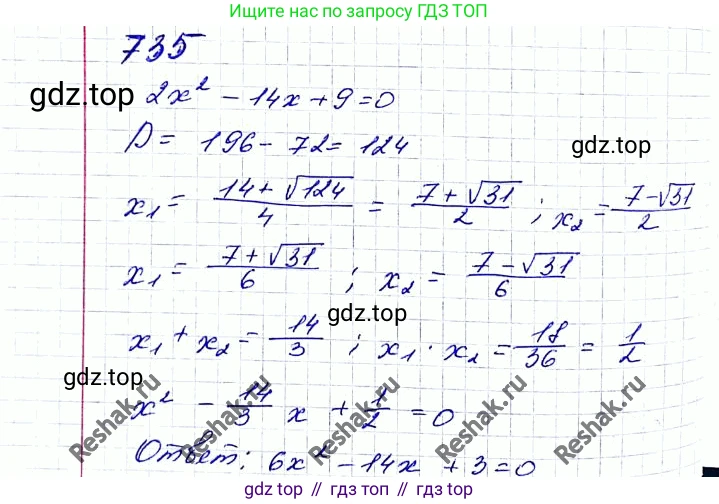 Ищите нас по запросу ГДЗ ТОП
735
gdz.top
2x² - 14x + 9 = 0
D = 196 - 72 = 124
gdz.top
x₁ = (14 + √124)/4 = (7 + √31)/2 ; x₂ = (7 - √31)/2
x₁ = (7 + √31)/6 ; x₂ = (7 - √31)/6
gdz.top
x₁ + x₂ = 14/3 ; x₁ · x₂ = 18/36 = 1/2
gdz.top
x² - 14/3 x + 1/2 = 0
Reshak.ru
Reshak.ru
Reshak.ru
Ответ: 6x² - 14x + 3 = 0
gdz top // гдз топ // gdz.top